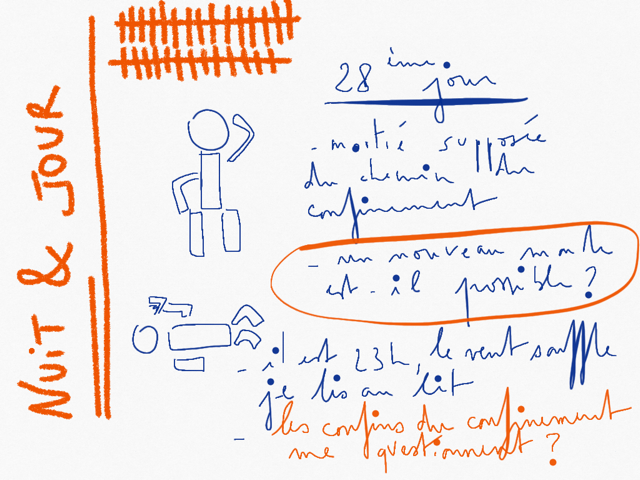 NUIT & JOUR
28 ième jour
- moitié supposée
du chemin du
confinement
- un nouveau monde
est-il possible ?
- il est 23h, le vent souffle
je lis au lit
- les confins du confinement
me questionnent ?